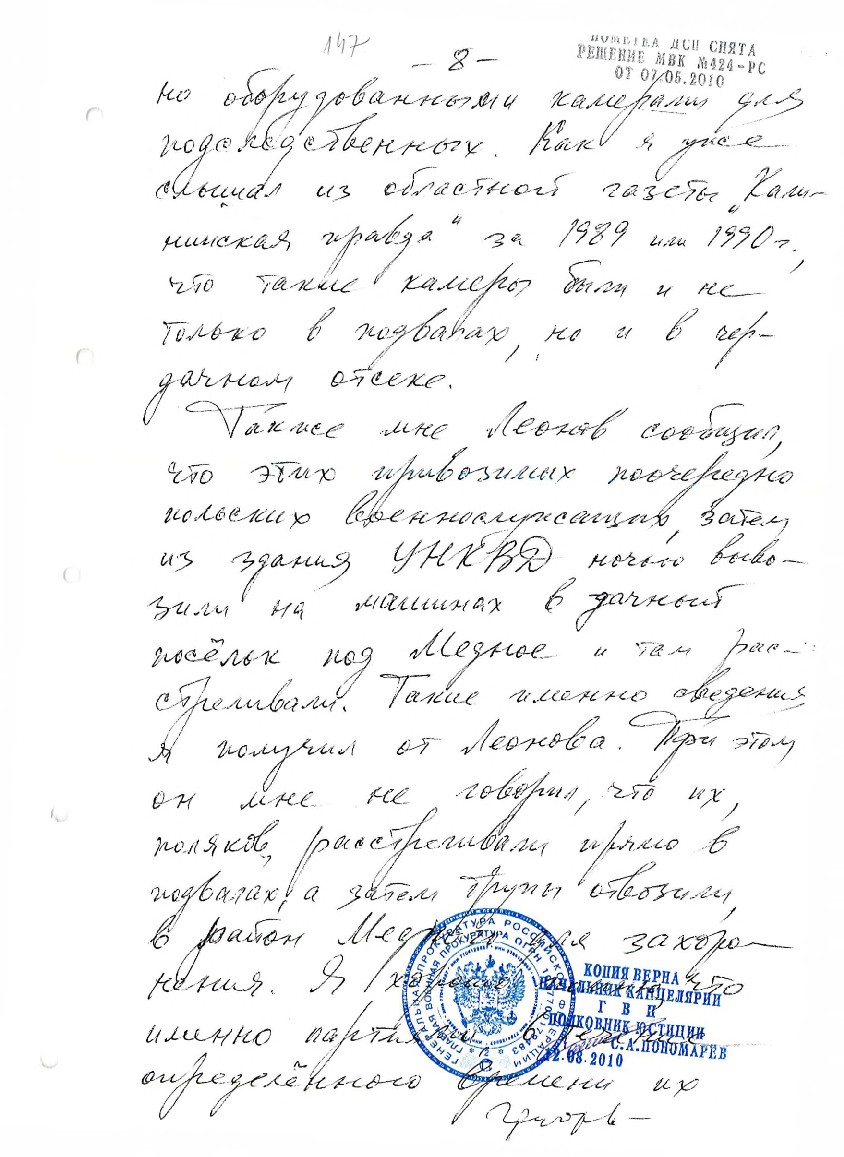 147
- 8 -
ПОМЕТКА ДСП СНЯТА
РЕШЕНИЕ МВК №424-РС
ОТ 07.05.2010
но оборудованными камерами для
подследственных. Как я уже
слышал из областной газеты „Кали-
нинская правда“ за 1989 или 1990 г.,
что такие камеры были и не
только в подвалах, но и в чер-
дачном отсеке.
Также мне Леонов сообщил,
что этих привозимых поочередно
польских военнослужащих, затем
из здания УНКВД ночью выво-
зили на машинах в дачный
посёлок под Медное и там рас-
стреливали. Такие именно сведения
я получил от Леонова. При этом
он мне не говорил, что их,
поляков, расстреливали прямо в
подвалах, а затем трупы отвозили
в район Медное для захоро-
нения. Я хорошо что
именно партиями, в течение
определённого времени их
ГЕНЕРАЛЬНАЯ ПРОКУРАТУРА РОССИЙСКОЙ ФЕДЕРАЦИИ
ГЛАВНАЯ ВОЕННАЯ ПРОКУРАТУРА ОГРН
КОПИЯ ВЕРНА
НАЧАЛЬНИК КАНЦЕЛЯРИИ
Г В П
ПОЛКОВНИК ЮСТИЦИИ
С.А.ПОНОМАРЕВ
12.08.2010